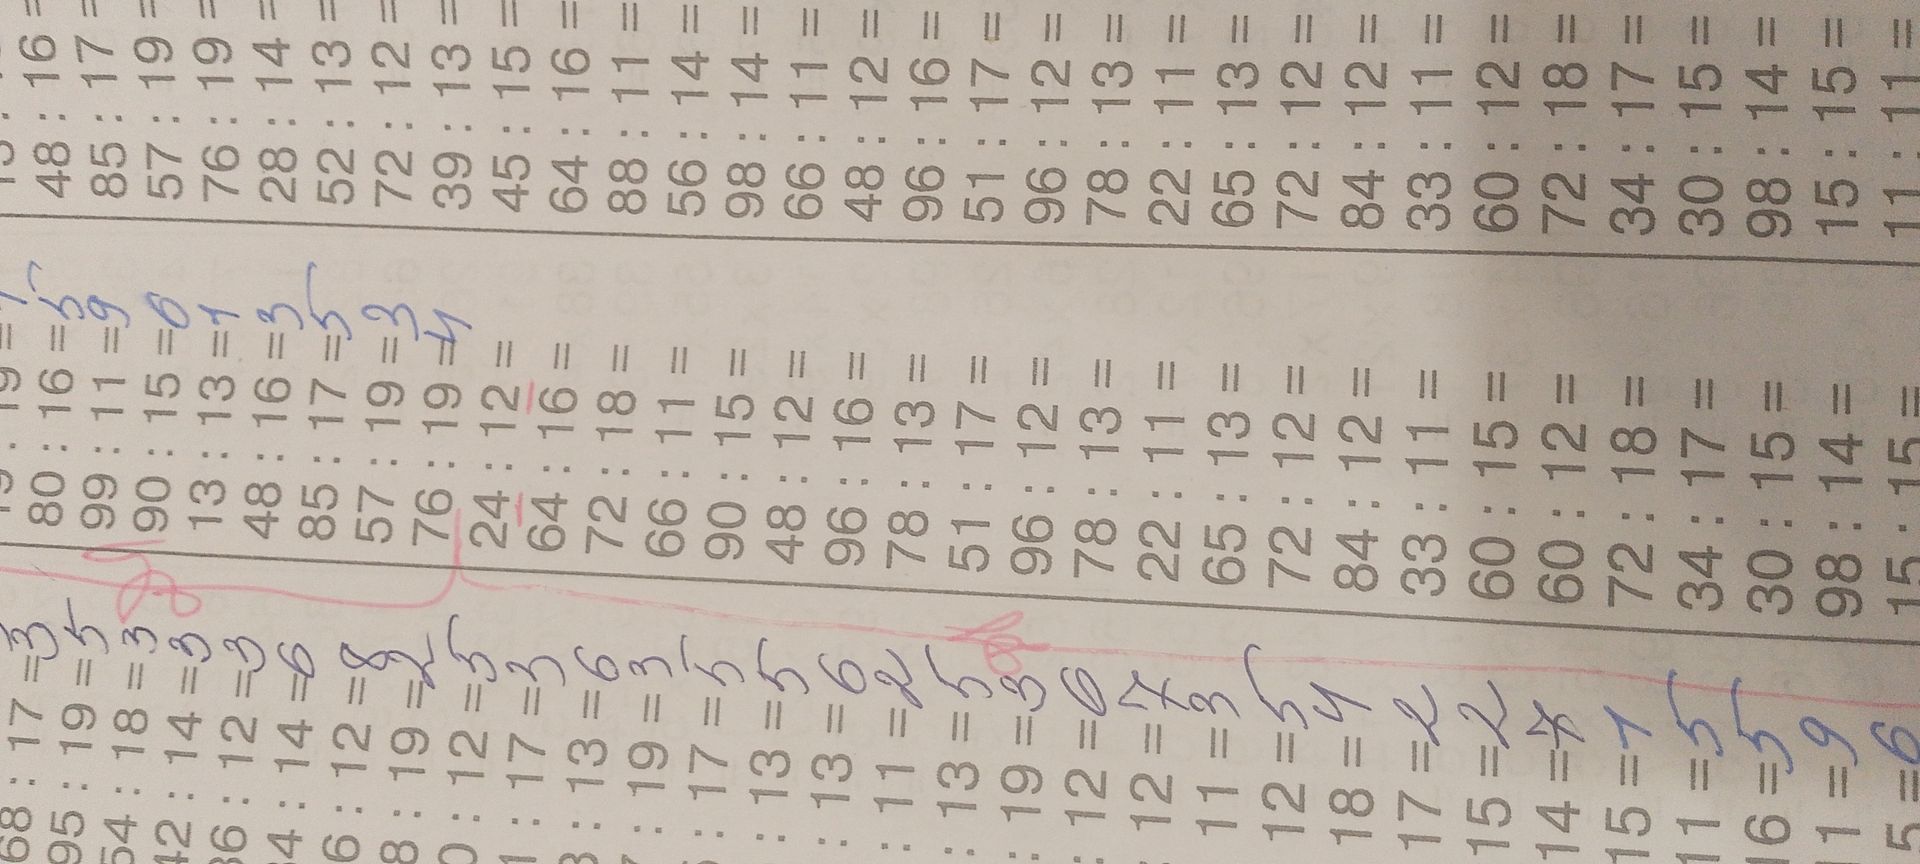 68 : 17 =
95 : 19 = 5
54 : 18 = 3
42 : 14 = 3
36 : 12 = 3
4 : 14 = 6
6 : 12 = 8
8 : 19 = 2
0 : 12 = 5
1 : 17 = 3
3 : 13 = 6
: 19 = 3
: 17 = 5
: 13 = 5
: 13 = 6
: 11 = 2
: 13 = 5
: 19 = 3
: 12 = 6
: 12 =
: 11 = 3
: 12 = 5
18 = 4
17 = 2
15 = 2
14 = 7
15 = 1
11 = 5
16 = 5
1 = 9
5 = 6
80 : 16 = 5
99 : 11 = 9
90 : 15 = 6
13 : 13 = 1
48 : 16 = 3
85 : 17 = 5
57 : 19 = 3
76 : 19 = 4
24 : 12 =
64 : 16 =
72 : 18 =
66 : 11 =
90 : 15 =
48 : 12 =
96 : 16 =
78 : 13 =
51 : 17 =
96 : 12 =
78 : 13 =
22 : 11 =
65 : 13 =
72 : 12 =
84 : 12 =
33 : 11 =
60 : 15 =
60 : 12 =
72 : 18 =
34 : 17 =
30 : 15 =
98 : 14 =
15 : 15 =
48 : 16 =
85 : 17 =
57 : 19 =
76 : 19 =
28 : 14 =
52 : 13 =
72 : 12 =
39 : 13 =
45 : 15 =
64 : 16 =
88 : 11 =
56 : 14 =
98 : 14 =
66 : 11 =
48 : 12 =
96 : 16 =
51 : 17 =
96 : 12 =
78 : 13 =
22 : 11 =
65 : 13 =
72 : 12 =
84 : 12 =
33 : 11 =
60 : 12 =
72 : 18 =
34 : 17 =
30 : 15 =
98 : 14 =
15 : 15 =
11 : 11 =